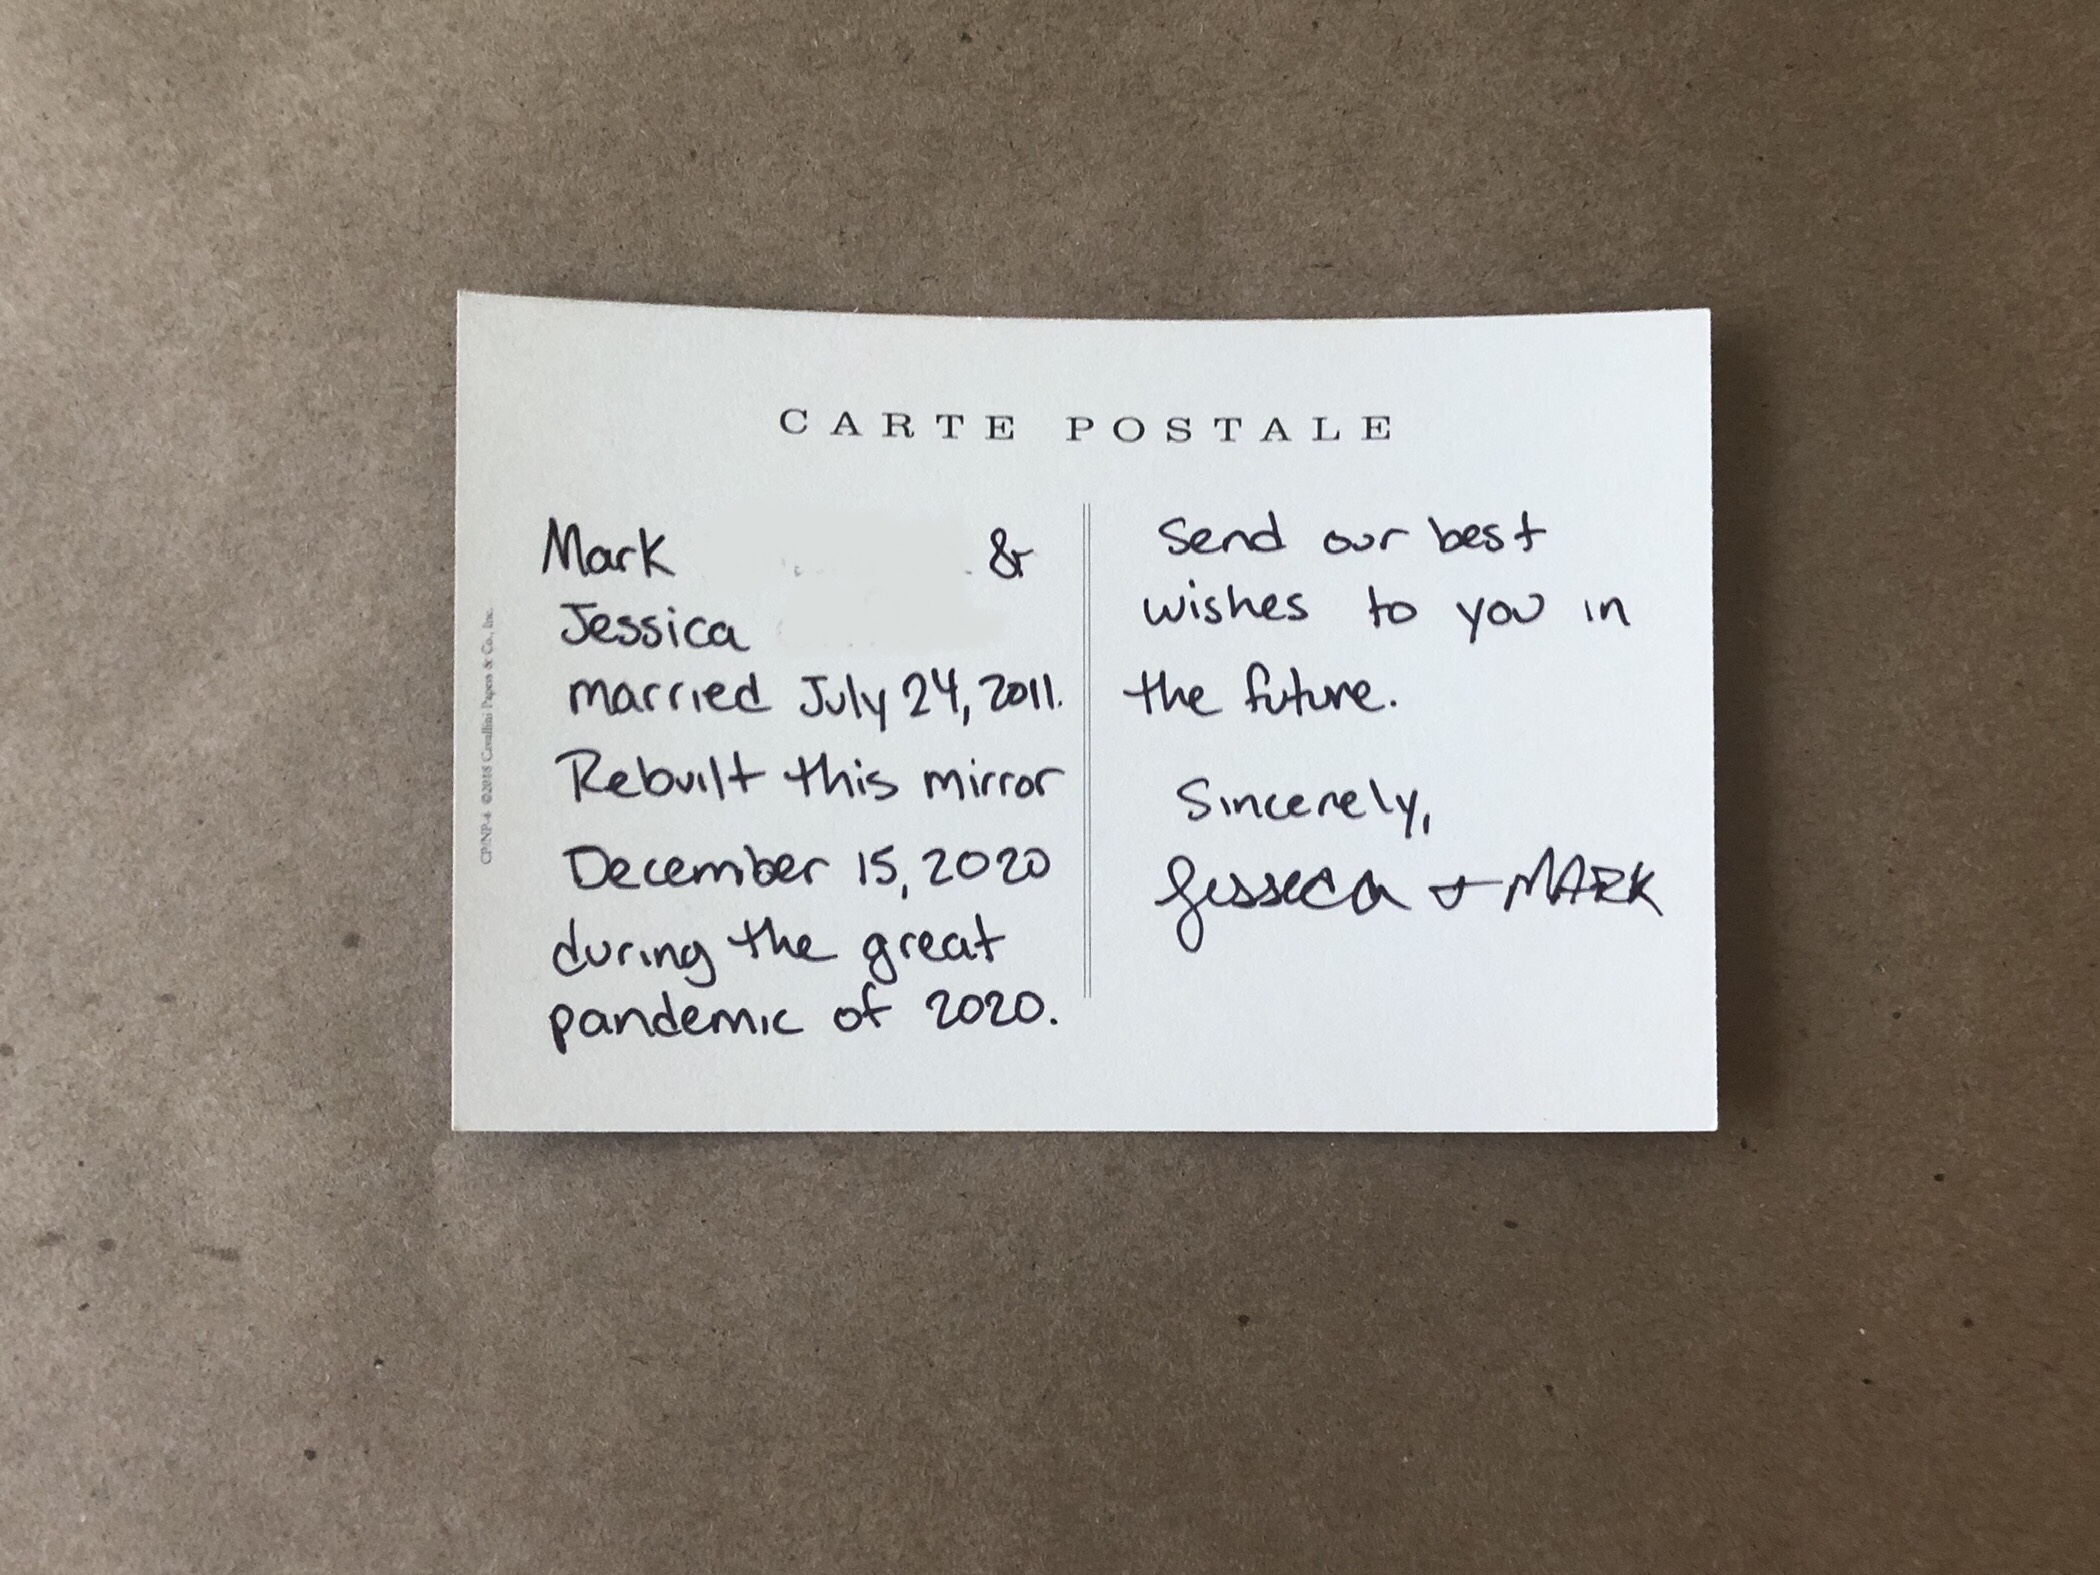 CARTE POSTALE
Mark &
Jessica
married July 24, 2011.
Rebuilt this mirror
December 15, 2020
during the great
pandemic of 2020.
Send our best
wishes to you in
the future.
Sincerely,
Jessica & MARK
CP/NP-4 ©2018 Cavallini Papers & Co., Inc.